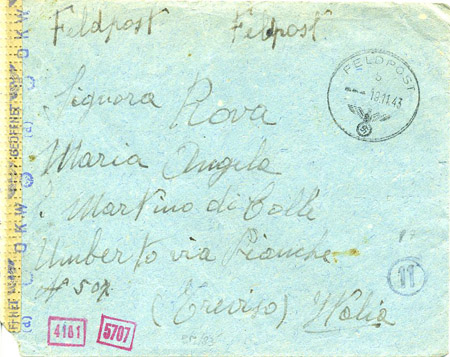 Feldpost Felpost
FELDPOST
b
18.11.43
Signora Rova
Maria Angela
S. Martino di Colle
Umberto via Pianche
N° 507
(Treviso) Italia
11
4101 5707
GEÖFFNET
O.K.W.